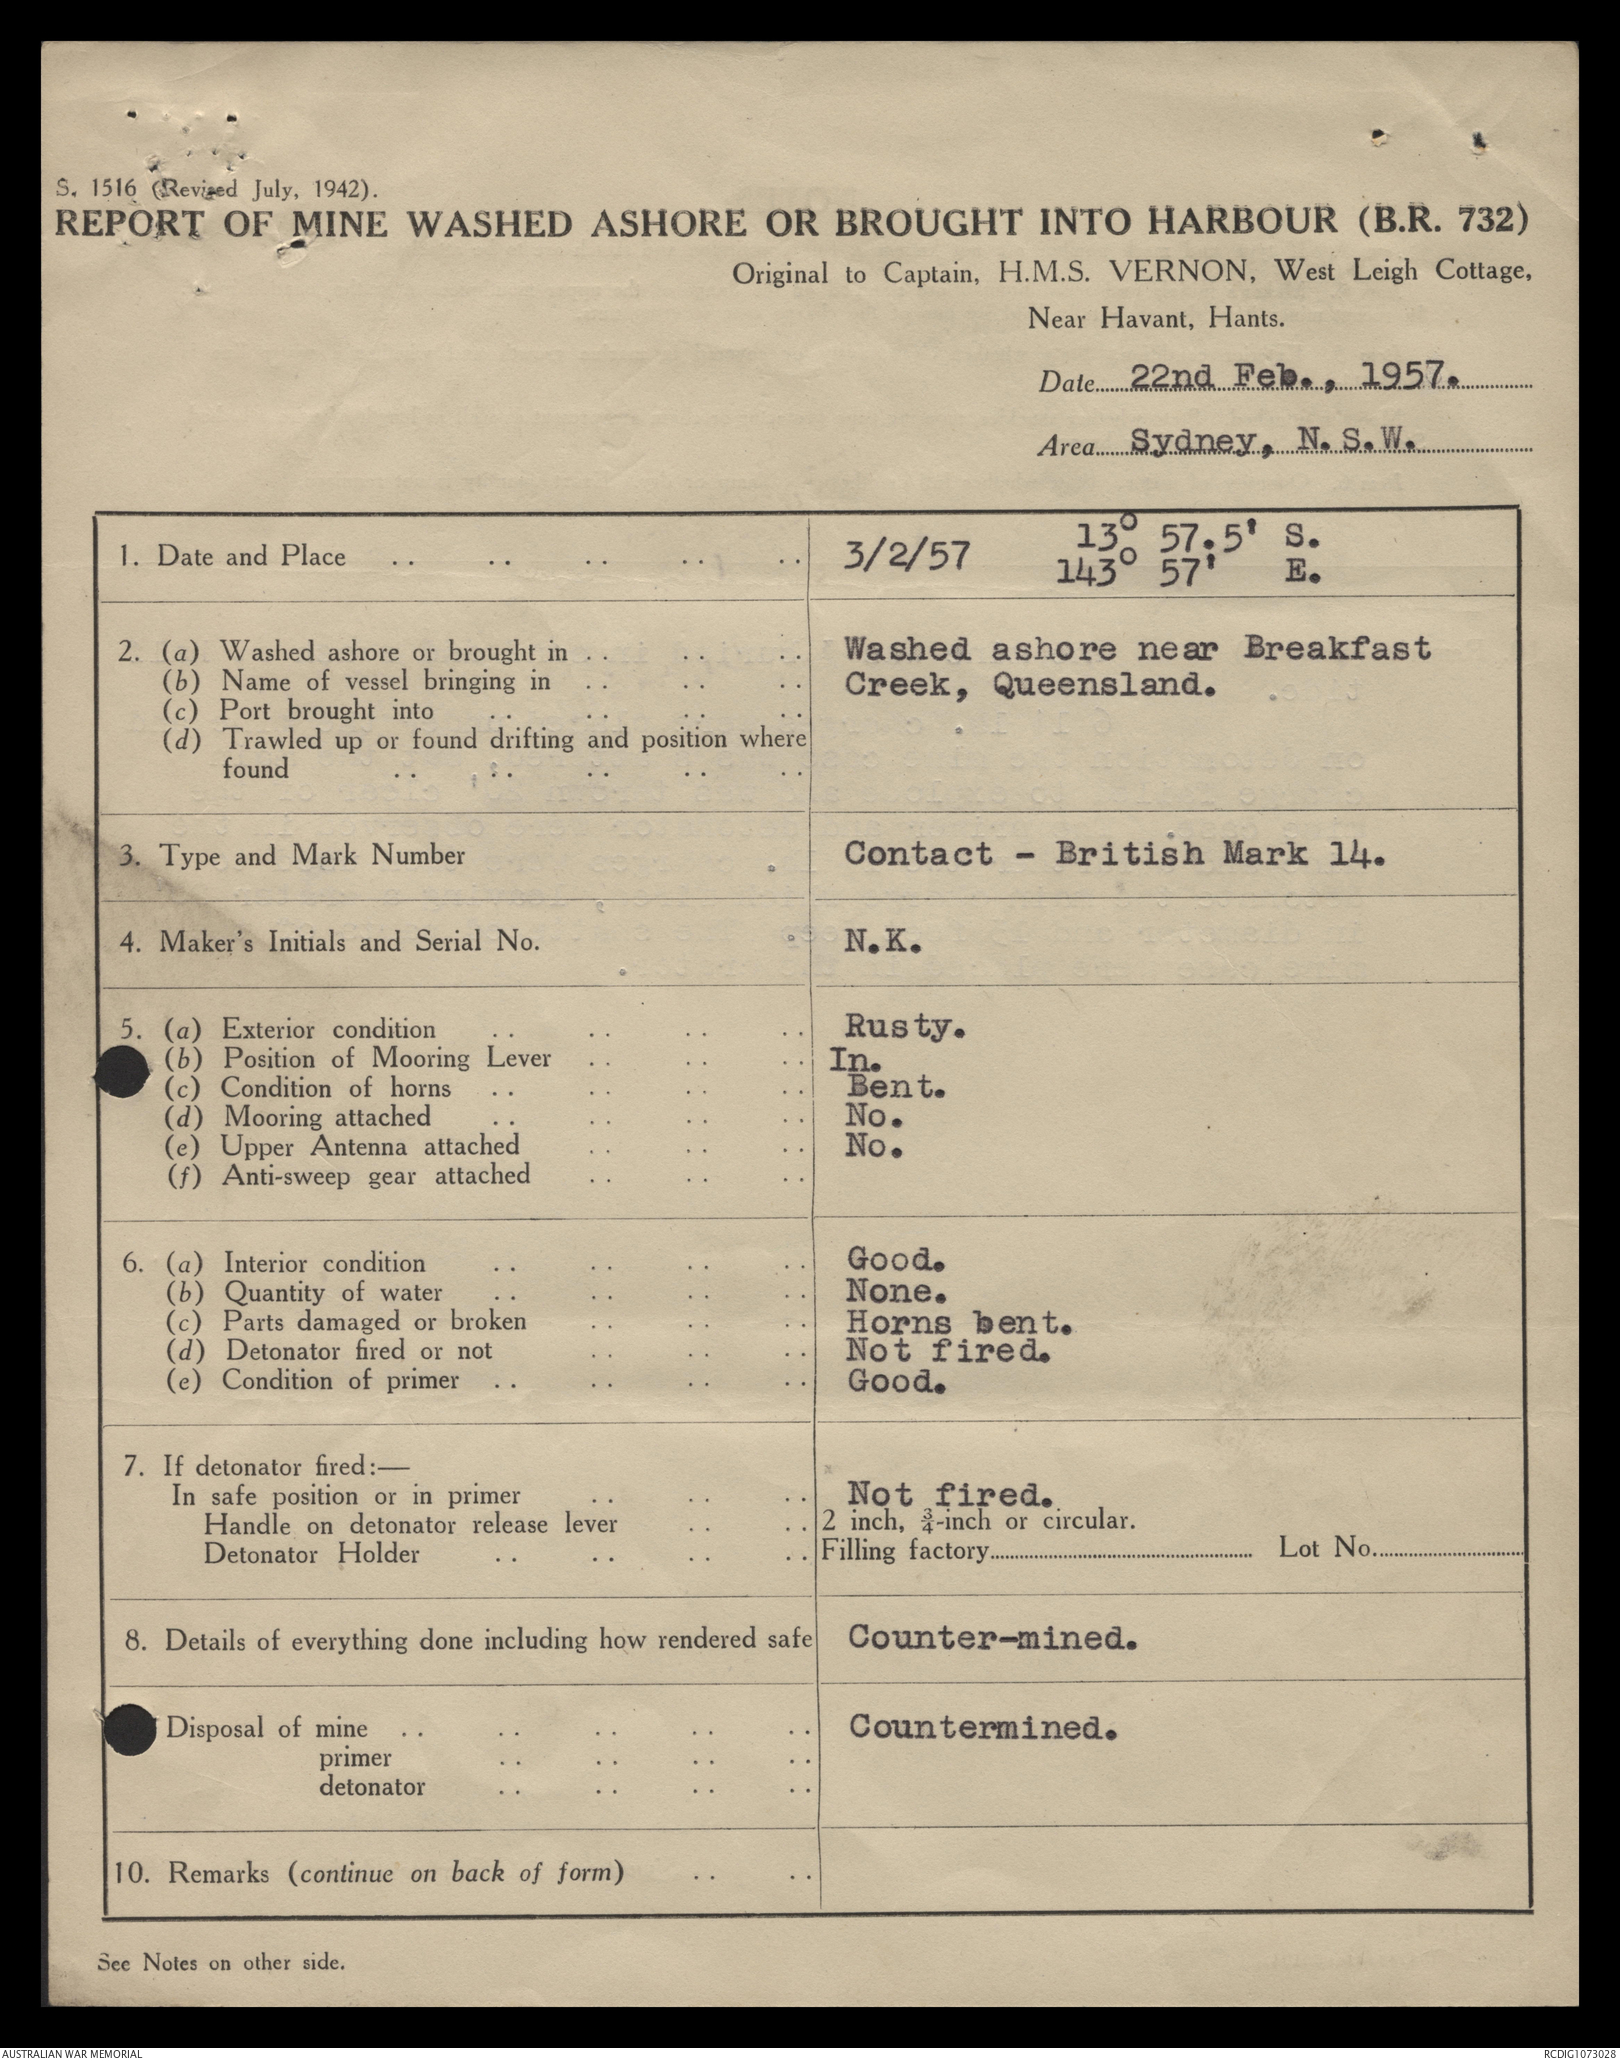 S. 1516 (Revised July, 1942).
REPORT OF MINE WASHED ASHORE OR BROUGHT INTO HARBOUR (B.R. 732)
Original to Captain, H.M.S. VERNON, West Leigh Cottage,
Near Havant, Hants.
Date 22nd Feb., 1957.
Area Sydney, N.S.W.
1. Date and Place .. .. .. .. .. 3/2/57 13° 57.5' S.
143° 57' E.
2. (a) Washed ashore or brought in .. .. .. Washed ashore near Breakfast
(b) Name of vessel bringing in .. .. .. Creek, Queensland.
(c) Port brought into .. .. .. ..
(d) Trawled up or found drifting and position where
found .. .. .. .. ..
3. Type and Mark Number Contact - British Mark 14.
4. Maker's Initials and Serial No. N.K.
5. (a) Exterior condition .. .. .. .. Rusty.
(b) Position of Mooring Lever .. .. .. In.
(c) Condition of horns .. .. .. .. Bent.
(d) Mooring attached .. .. .. .. No.
(e) Upper Antenna attached .. .. .. No.
(f) Anti-sweep gear attached .. .. ..
6. (a) Interior condition .. .. .. .. Good.
(b) Quantity of water .. .. .. .. None.
(c) Parts damaged or broken .. .. .. Horns bent.
(d) Detonator fired or not .. .. .. Not fired.
(e) Condition of primer .. .. .. .. Good.
7. If detonator fired:—
In safe position or in primer .. .. .. Not fired.
Handle on detonator release lever .. .. 2 inch, ¾-inch or circular.
Detonator Holder .. .. .. .. Filling factory Lot No.
8. Details of everything done including how rendered safe Counter-mined.
Disposal of mine .. .. .. .. .. Countermined.
primer .. .. .. ..
detonator .. .. .. ..
10. Remarks (continue on back of form) .. ..
See Notes on other side.
AUSTRALIAN WAR MEMORIAL
RCDIG1073028